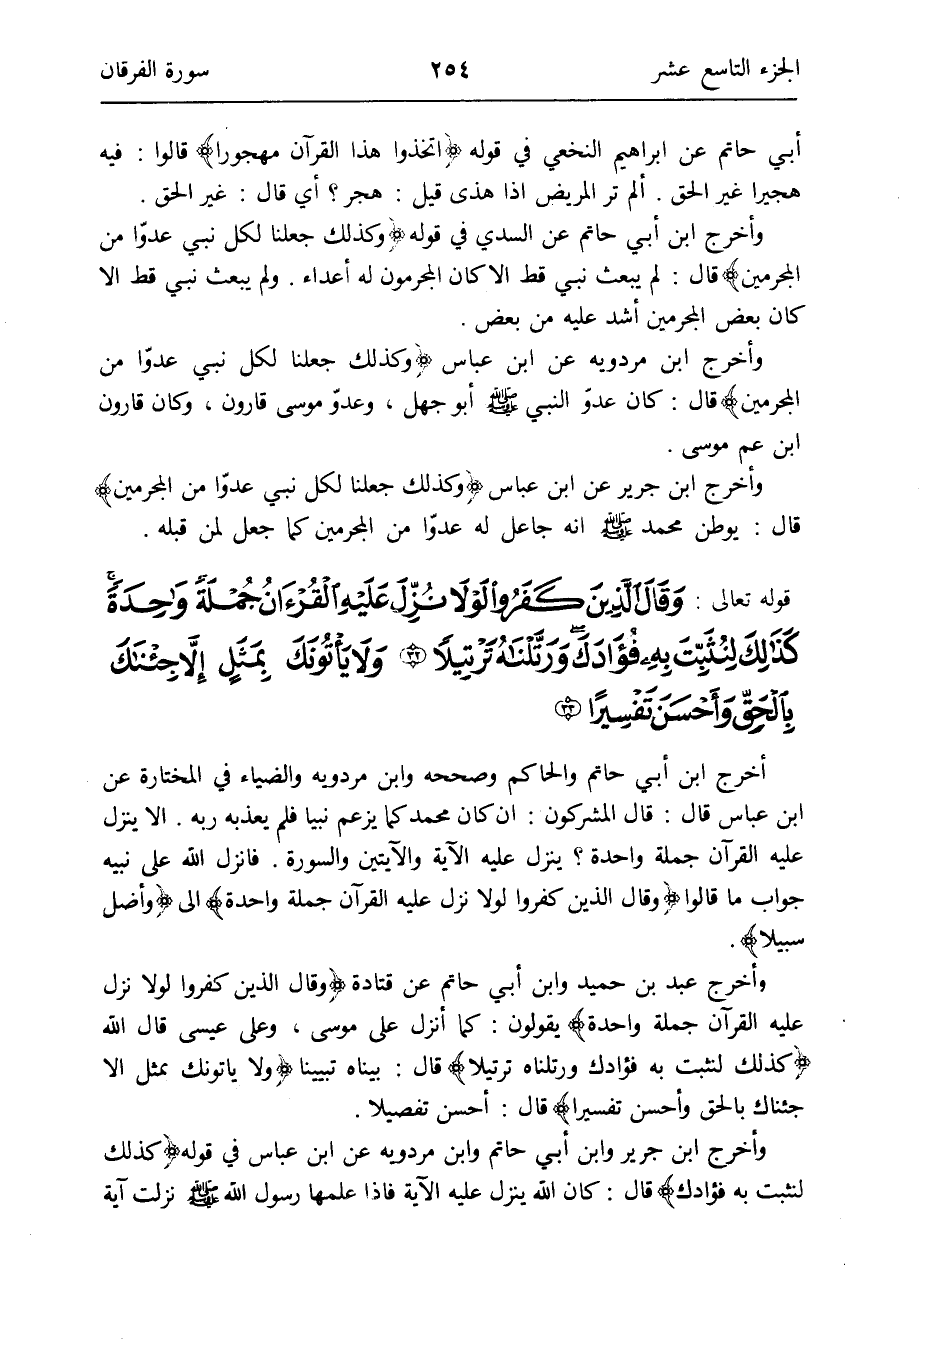 الجزء التاسع عشر ٢٥٤ سورة الفرقان
أبي حاتم عن ابراهيم النخعي في قوله ﴿اتخذوا هذا القرآن مهجورا﴾ قالوا : فيه
هجيرا غير الحق . ألم تر المريض اذا هذى قيل : هجر ؟ أي قال : غير الحق .
وأخرج ابن أبي حاتم عن السدي في قوله ﴿وكذلك جعلنا لكل نبي عدوّا من
المجرمين﴾ قال : لم يبعث نبي قط الا كان المجرمون له أعداء . ولم يبعث نبي قط الا
كان بعض المجرمين أشد عليه من بعض .
وأخرج ابن مردويه عن ابن عباس ﴿وكذلك جعلنا لكل نبي عدوّا من
المجرمين﴾ قال : كان عدوّ النبي ﷺ أبو جهل ، وعدوّ موسى قارون ، وكان قارون
ابن عم موسى .
وأخرج ابن جرير عن ابن عباس ﴿وكذلك جعلنا لكل نبي عدوّا من المجرمين﴾
قال : يوطن محمد ﷺ انه جاعل له عدوّا من المجرمين كما جعل لمن قبله .
قوله تعالى : وَقَالَ ٱلَّذِينَ كَفَرُواْ لَوْلَا نُزِّلَ عَلَيْهِ ٱلْقُرْءَانُ جُمْلَةً وَٰحِدَةً ۚ
كَذَٰلِكَ لِنُثَبِّتَ بِهِۦ فُؤَادَكَ ۖ وَرَتَّلْنَٰهُ تَرْتِيلًا ﴿٣٢﴾ وَلَا يَأْتُونَكَ بِمَثَلٍ إِلَّا جِئْنَٰكَ
بِٱلْحَقِّ وَأَحْسَنَ تَفْسِيرًا ﴿٣٣﴾
أخرج ابن أبي حاتم والحاكم وصححه وابن مردويه والضياء في المختارة عن
ابن عباس قال : قال المشركون : ان كان محمد كما يزعم نبيا فلم يعذبه ربه . الا ينزل
عليه القرآن جملة واحدة ؟ ينزل عليه الآية والآيتين والسورة . فانزل الله على نبيه
جواب ما قالوا ﴿وقال الذين كفروا لولا نزل عليه القرآن جملة واحدة﴾ الى ﴿وأضل
سبيلا﴾ .
وأخرج عبد بن حميد وابن أبي حاتم عن قتادة ﴿وقال الذين كفروا لولا نزل
عليه القرآن جملة واحدة﴾ يقولون : كما أنزل على موسى ، وعلى عيسى قال الله
﴿كذلك لنثبت به فؤادك ورتلناه ترتيلا﴾ قال : بيناه تبيينا ﴿ولا ياتونك بمثل الا
جئناك بالحق وأحسن تفسيرا﴾ قال : أحسن تفصيلا .
وأخرج ابن جرير وابن أبي حاتم وابن مردويه عن ابن عباس في قوله ﴿كذلك
لنثبت به فؤادك﴾ قال : كان الله ينزل عليه الآية فاذا علمها رسول الله ﷺ نزلت آية